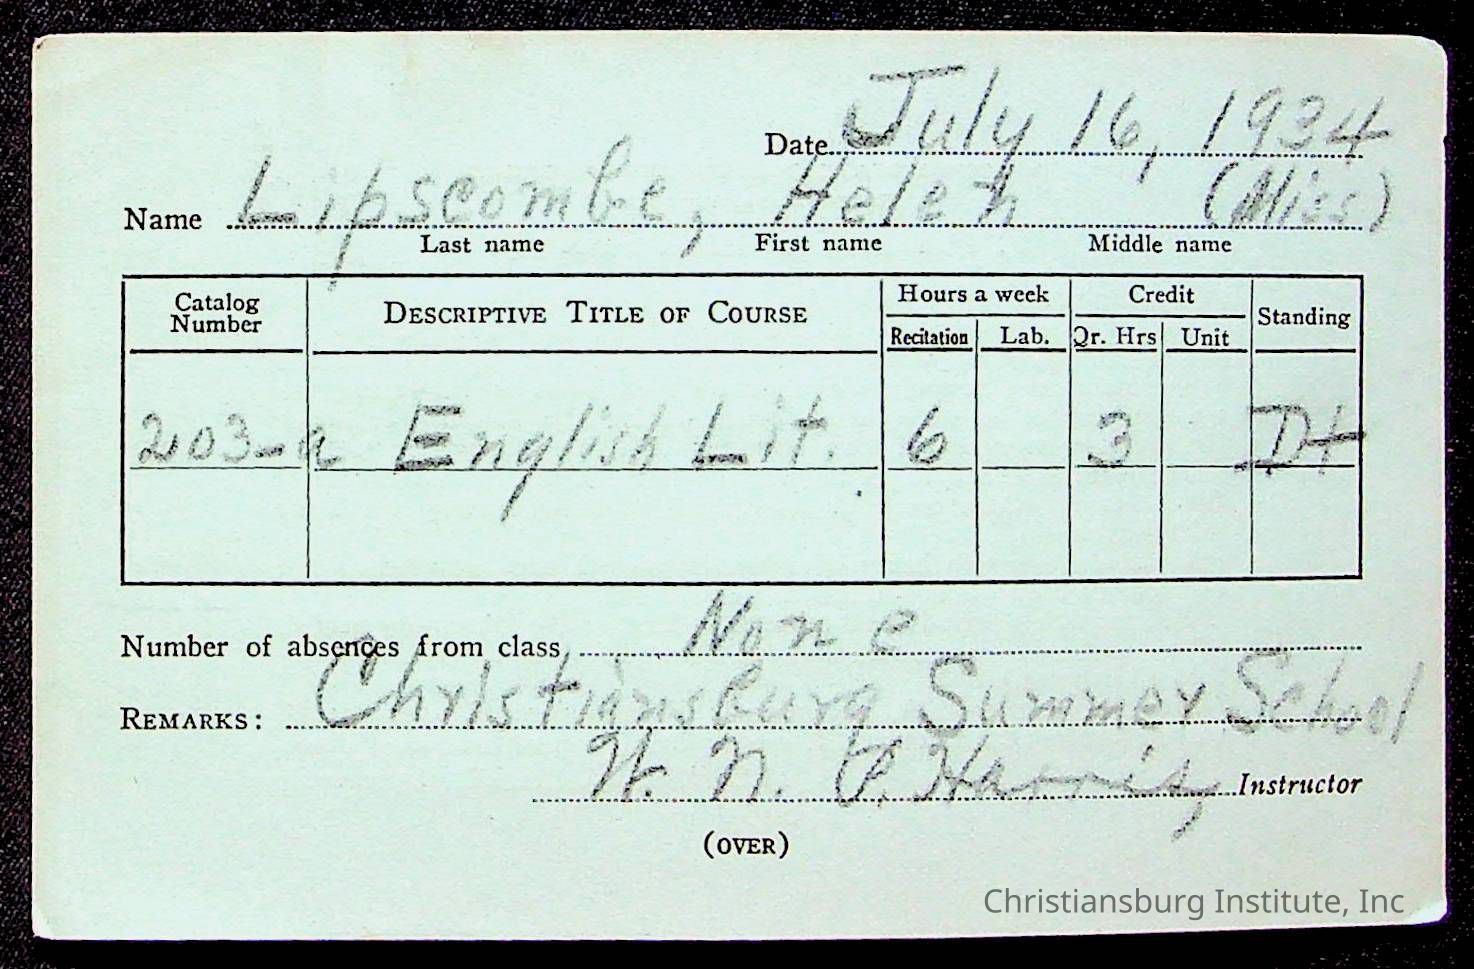 Date July 16, 1934
Name Lipscombe, Helen (Miss)
Last name First name Middle name
Catalog Number DESCRIPTIVE TITLE OF COURSE Hours a week Credit Standing
Recitation Lab. Qr. Hrs Unit
203-a English Lit. 6 3 D+
Number of absences from class None
REMARKS: Christiansburg Summer School
W. N. P. Harris, Instructor
(OVER)
Christiansburg Institute, Inc